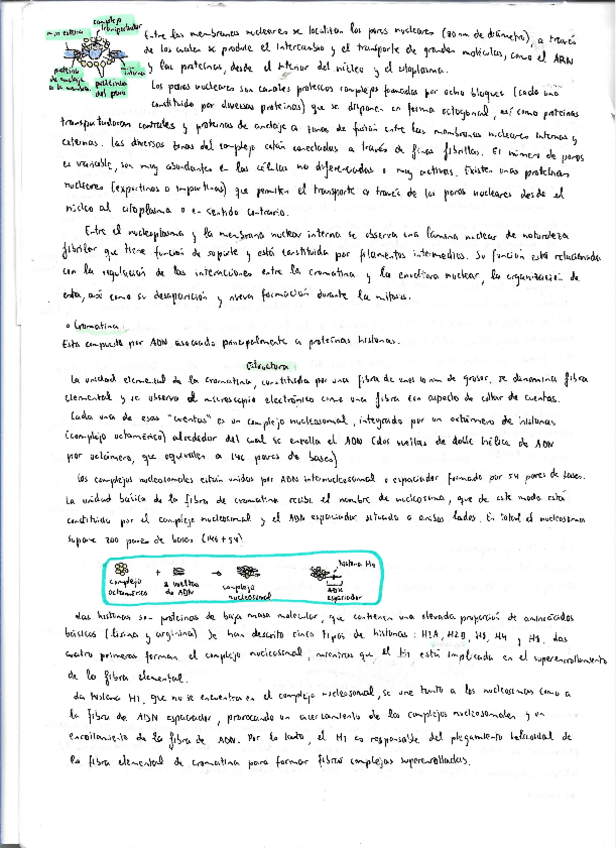 complejo
transportador
Entre las membranas nucleares se localizan los poros nucleares (80 nm de diámetro), a través
de los cuales se produce el intercambio y el transporte de grandes moléculas, como el ARN
y las proteínas, desde el interior del núcleo y el citoplasma.
proteínas
de anclaje
a la membrana
proteínas
del poro
Los poros nucleares son canales proteicos complejos formados por ocho bloques (cada uno
constituido por diversas proteínas) que se disponen en forma octogonal, así como proteínas
transportadoras centrales y proteínas de anclaje a zonas de fusión entre las membranas nucleares internas y
externas. Las diversas zonas del complejo están conectadas a través de finas fibrillas. El número de poros
es variable, son muy abundantes en las células no diferenciadas o muy activas. Existen unas proteínas
nucleares (exportinas o importinas) que permiten el transporte a través de los poros nucleares desde el
núcleo al citoplasma o en sentido contrario.
Entre el nucleoplasma y la membrana nuclear interna se observa una lámina nuclear de naturaleza
fibrilar que tiene función de soporte y está constituida por filamentos intermedios. Su función está relacionada
con la regulación de las interacciones entre la cromatina y la envoltura nuclear, la organización de
esta, así como su desaparición y nueva formación durante la mitosis.
o Cromatina:
Esta compuesta por ADN asociado principalmente a proteínas histonas.
Estructura:
La unidad elemental de la cromatina, constituida por una fibra de unos 10 nm de grosor, se denomina fibra
elemental y se observa al microscopio electrónico como una fibra con aspecto de collar de cuentas.
Cada una de esas "cuentas" es un complejo nucleosomal, integrado por un octámero de histonas
(complejo octamérico) alrededor del cual se enrolla el ADN (dos vueltas de doble hélice de ADN
por octámero, que equivalen a 146 pares de bases)
Los complejos nucleosomales están unidos por ADN internucleosomal o espaciador formado por 54 pares de bases.
La unidad básica de la fibra de cromatina recibe el nombre de nucleosoma, que de este modo está
constituido por el complejo nucleosomal y el ADN espaciador situado a ambos lados. En total el nucleosoma
supone 200 pares de bases (146 + 54)
histona H1
complejo
octamérico
+
2 vueltas
de ADN
→
complejo
nucleosomal
ADN
espaciador
Las histonas son proteínas de baja masa molecular, que contienen una elevada proporción de aminoácidos
básicos (lisina y arginina) Se han descrito cinco tipos de histonas: H2A, H2B, H3, H4 y H1, las
cuatro primeras forman el complejo nucleosomal, mientras que el H1 está implicada en el superenrollamiento
de la fibra elemental.
La histona H1, que no se encuentra en el complejo nucleosomal, se une tanto a los nucleosomas como a
la fibra de ADN espaciador, provocando un acercamiento de los complejos nucleosomales y un
enrollamiento de la fibra de ADN. Por lo tanto, el H1 es responsable del plegamiento helicoidal de
la fibra elemental de cromatina para formar fibras complejas superenrolladas.